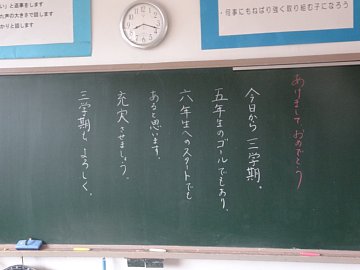 い」と返事をします
た声の大きさで話します
かりと話します
・何事にもねばり強く取り組む子になろう
あけまして おめでとう
今日から 三学期。
五年生のゴールでもあり、
六年生へのスタートでも
あると思います。
充実させましょう。
三学期も よろしく。